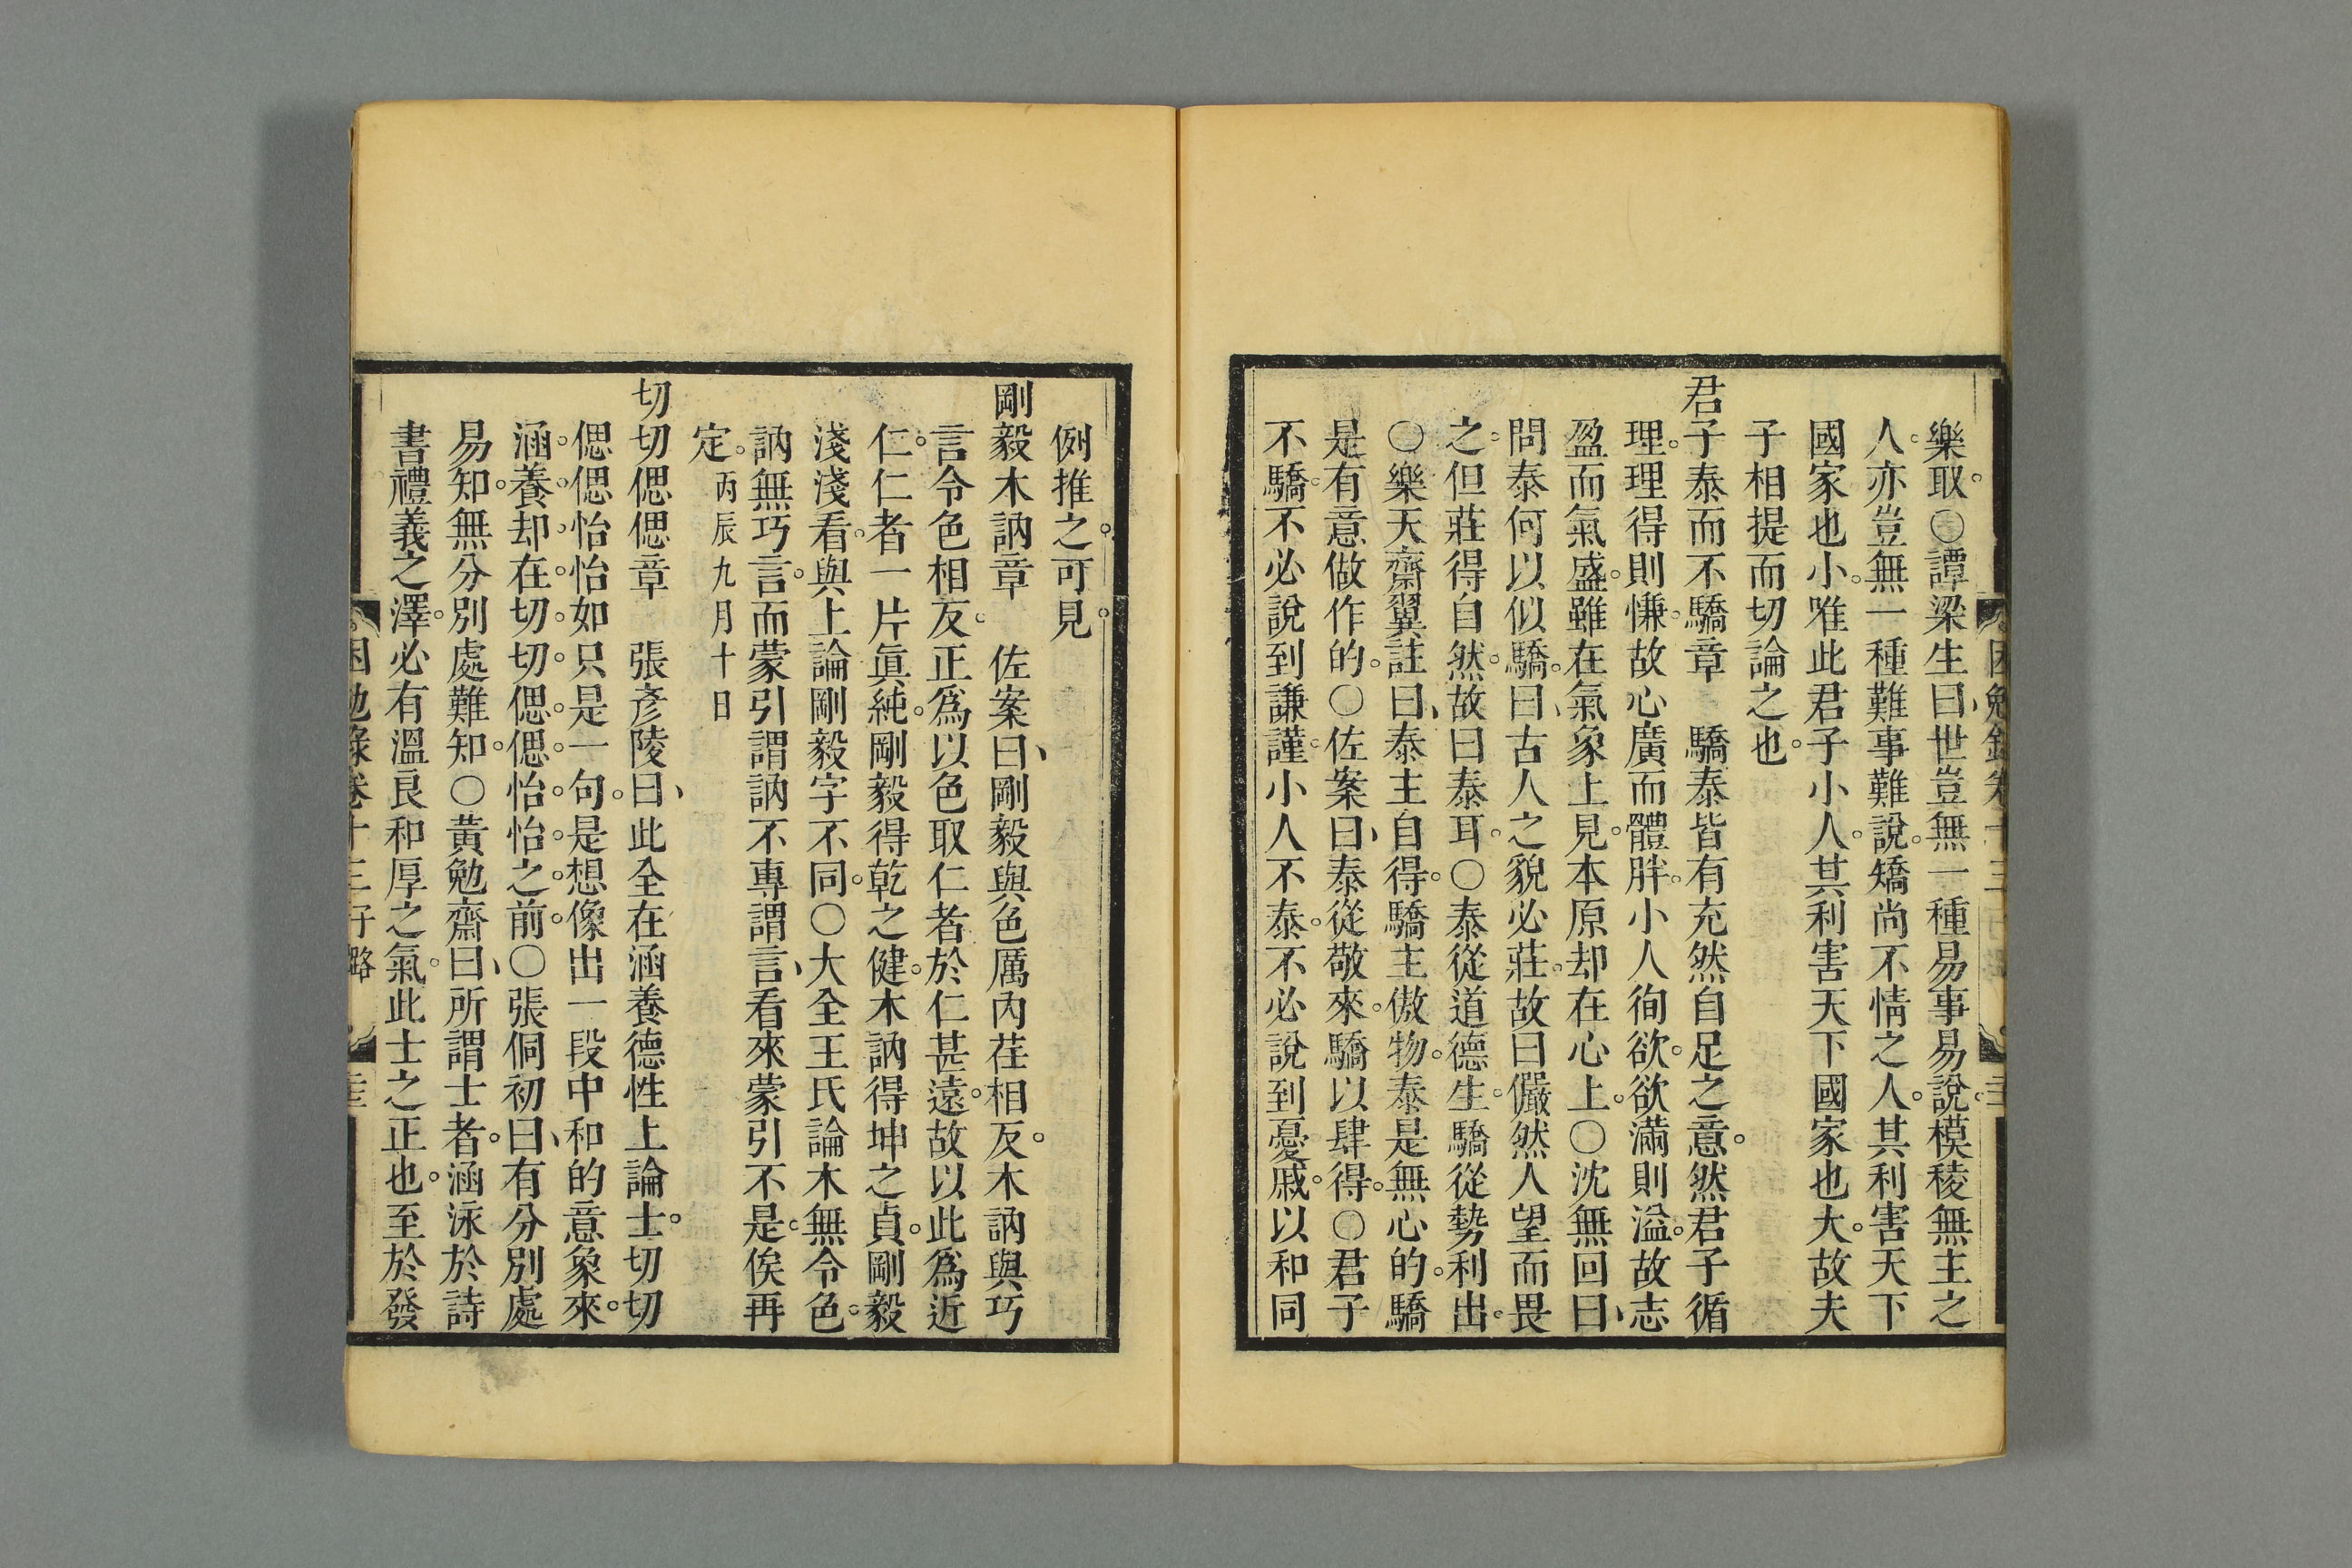 樂取。○譚梁生曰、世豈無一種易事易說。模稜無主之
人。亦豈無一種難事難說。矯尚不情之人。其利害天下
國家也小。唯此君子小人。其利害天下國家也大。故夫
子相提而切論之也。
君子泰而不驕章　驕泰皆有充然自足之意。然君子循
理。理得則慊。故心廣而體胖。小人徇欲。欲滿則溢。故志
盈而氣盛。雖在氣象上見。本原却在心上。○沈無回曰、
問泰何以似驕。曰、古人之貌必莊。故曰儼然人望而畏
之。但莊得自然。故曰泰耳。○泰從道德生。驕從勢利出。
○樂天齋翼註曰、泰主自得。驕主傲物。泰是無心的。驕
是有意做作的。○佐案曰、泰從敬來。驕以肆得。○君子
不驕。不必說到謙謹。小人不泰。不必說到憂戚。以和同
例推之。可見。
剛毅木訥章　佐案曰、剛毅與色厲內荏相反。木訥與巧
言令色相反。正爲以色取仁者於仁甚遠。故以此爲近
仁。仁者一片眞純。剛毅得乾之健。木訥得坤之貞。剛毅
淺淺看。與上論剛毅字不同。○大全王氏論木無令色。
訥無巧言。而蒙引謂訥不專謂言、看來蒙引不是。俟再
定。丙辰九月十日
切切偲偲章　張彥陵曰、此全在涵養德性上論士。切切
偲偲怡怡如只是一句。是想像出一段中和的意象來。
涵養却在切切偲偲怡怡之前。○張侗初曰、有分別處
易知。無分別處難知。○黃勉齋曰、所謂士者。涵泳於詩
書禮義之澤。必有溫良和厚之氣。此士之正也。至於發
困勉錄卷十三子路